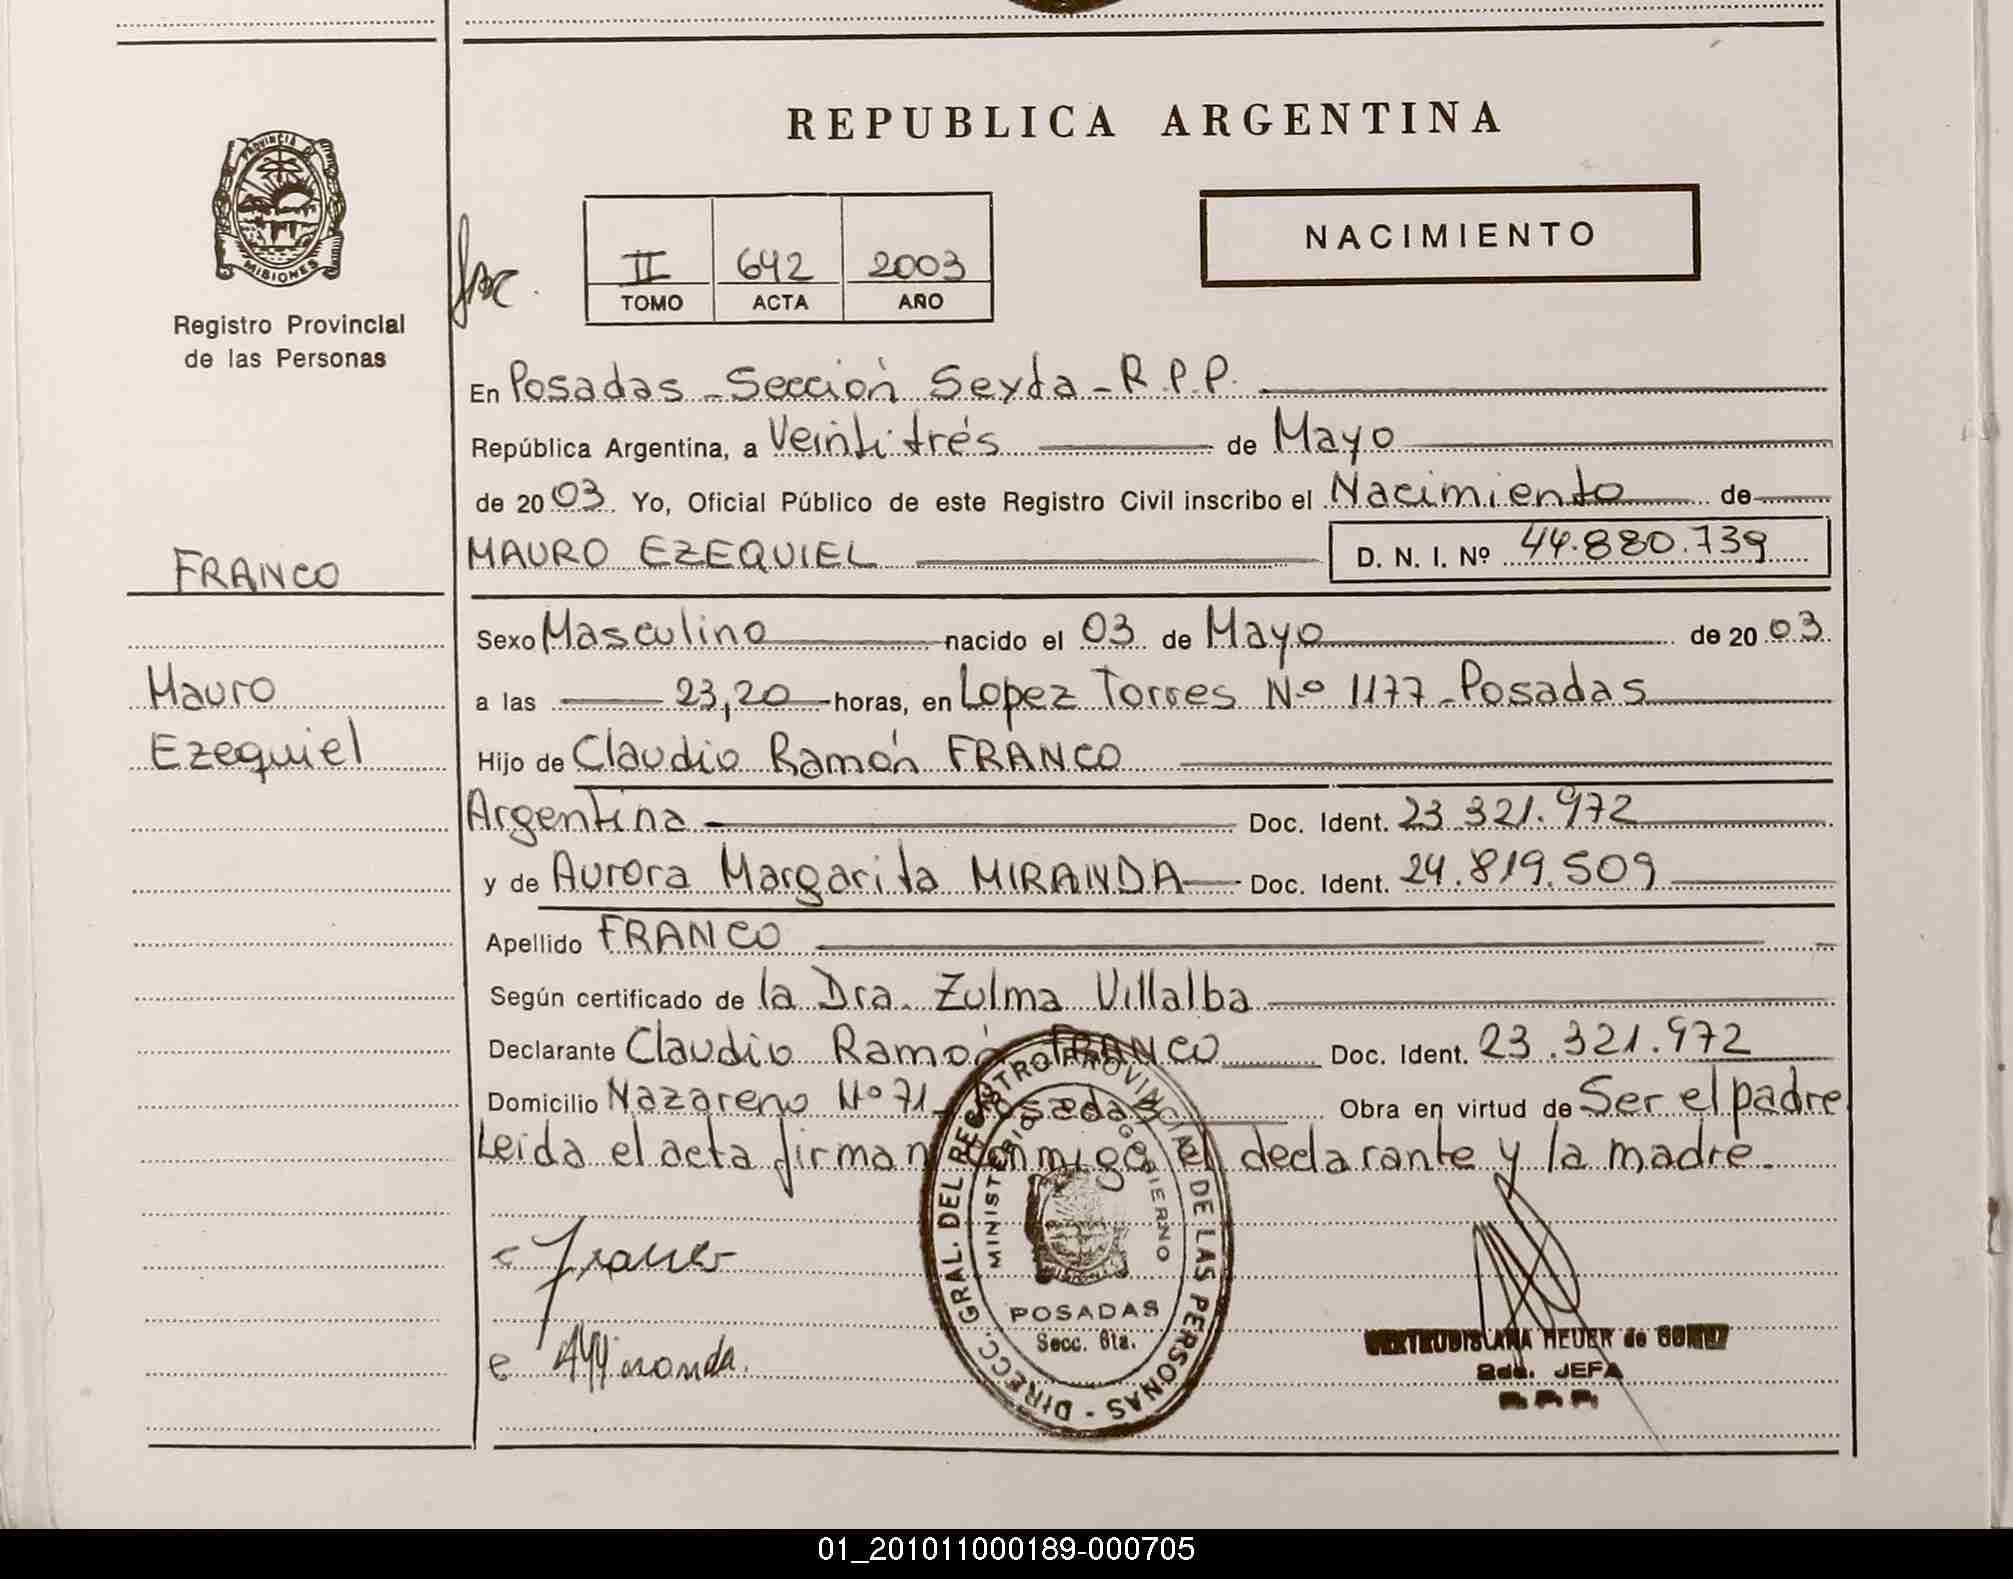 REPUBLICA ARGENTINA
PROVINCIA D
MISIONES
Registro Provincial
de las Personas
NACIMIENTO
II 642 2003
TOMO ACTA AÑO
En Posadas - Sección Sexta - R.P.P.
República Argentina, a Veintitrés de Mayo
de 2003. Yo, Oficial Público de este Registro Civil inscribo el Nacimiento de
FRANCO
MAURO EZEQUIEL D. N. I. Nº 44.880.739
Sexo Masculino nacido el 03 de Mayo de 2003.
Mauro
a las 23,20 horas, en Lopez Torres Nº 1177 - Posadas
Ezequiel
Hijo de Claudio Ramón FRANCO
Argentina Doc. Ident. 23.321.972
y de Aurora Margarita MIRANDA Doc. Ident. 24.819.509
Apellido FRANCO
Según certificado de la Dra. Zulma Villalba
Declarante Claudio Ramón FRANCO Doc. Ident. 23.321.972
Domicilio Nazareno Nº 71 - Posadas Obra en virtud de Ser el padre
Leida el acta firman conmigo el declarante y la madre.
DIRECC. GRAL. DEL REGISTRO PROVINCIAL DE LAS PERSONAS -
MINISTERIO GOBIERNO
POSADAS
Secc. 6ta.
Franco
Miranda.
HEUER de
JEFA
01_201011000189-000705